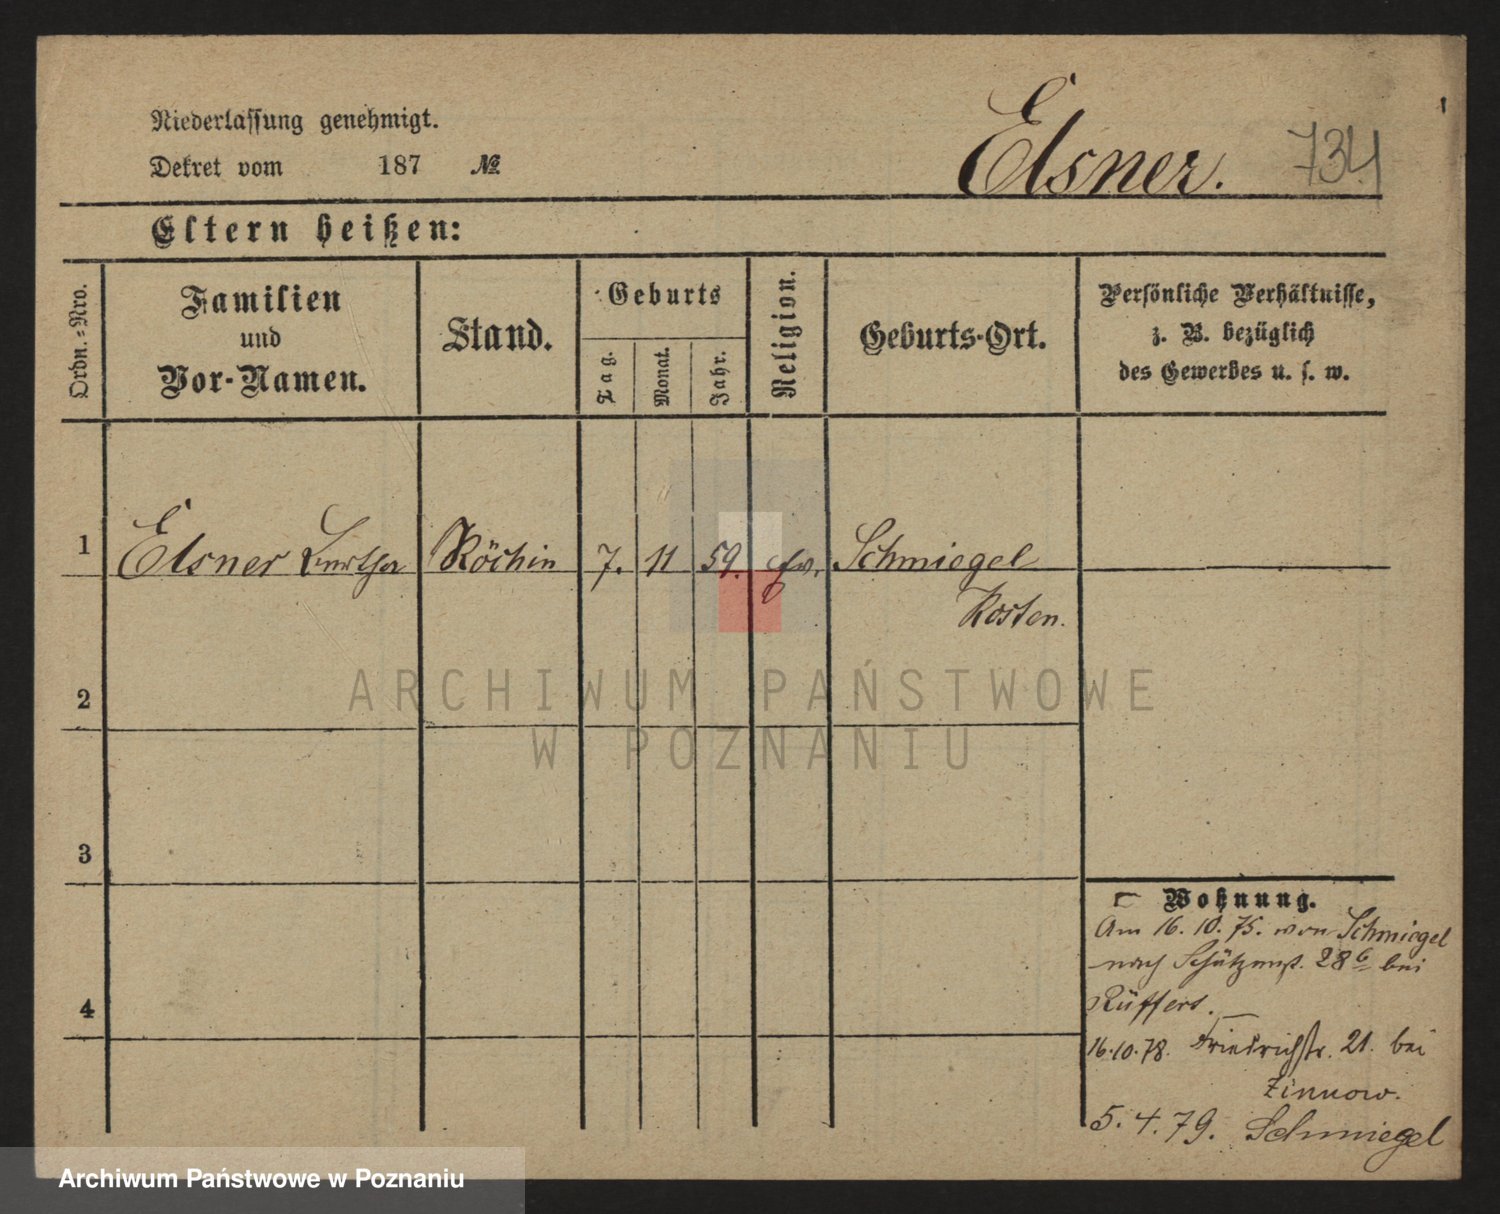 Niederlassung genehmigt.
Dekret vom 187 №
Elsner. 734
Eltern heißen:
Ordn.-Nro.
Familien
und
Vor-Namen.
Stand.
Geburts
Tag.
Monat.
Jahr.
Religion.
Geburts-Ort.
Persönliche Verhältnisse,
z. B. bezüglich
des Gewerbes u. s. w.
1 Elsner Köchin 7. 11 59. ev. Schmiegel
Kosten.
2
3
4
Wohnung.
Am 16. 10. 75. von Schmiegel
nach Schützenstr. 28 b bei
Rüffert.
16.10.78. Friedrichstr. 21. bei
Zinnow.
5. 4. 79. Schmiegel
ARCHIWUM PAŃSTWOWE
W POZNANIU
Archiwum Państwowe w Poznaniu